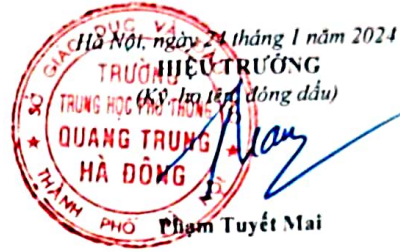 Hà Nội, ngày 24 tháng 1 năm 2024
HIỆU TRƯỞNG
(Ký, họ tên đóng dấu)
SỞ GIÁO DỤC VÀ ĐÀO
TRƯỜNG
TRUNG HỌC PHỔ THÔNG
QUANG TRUNG
HÀ ĐÔNG
THÀNH PHỐ NỘI
Phạm Tuyết Mai